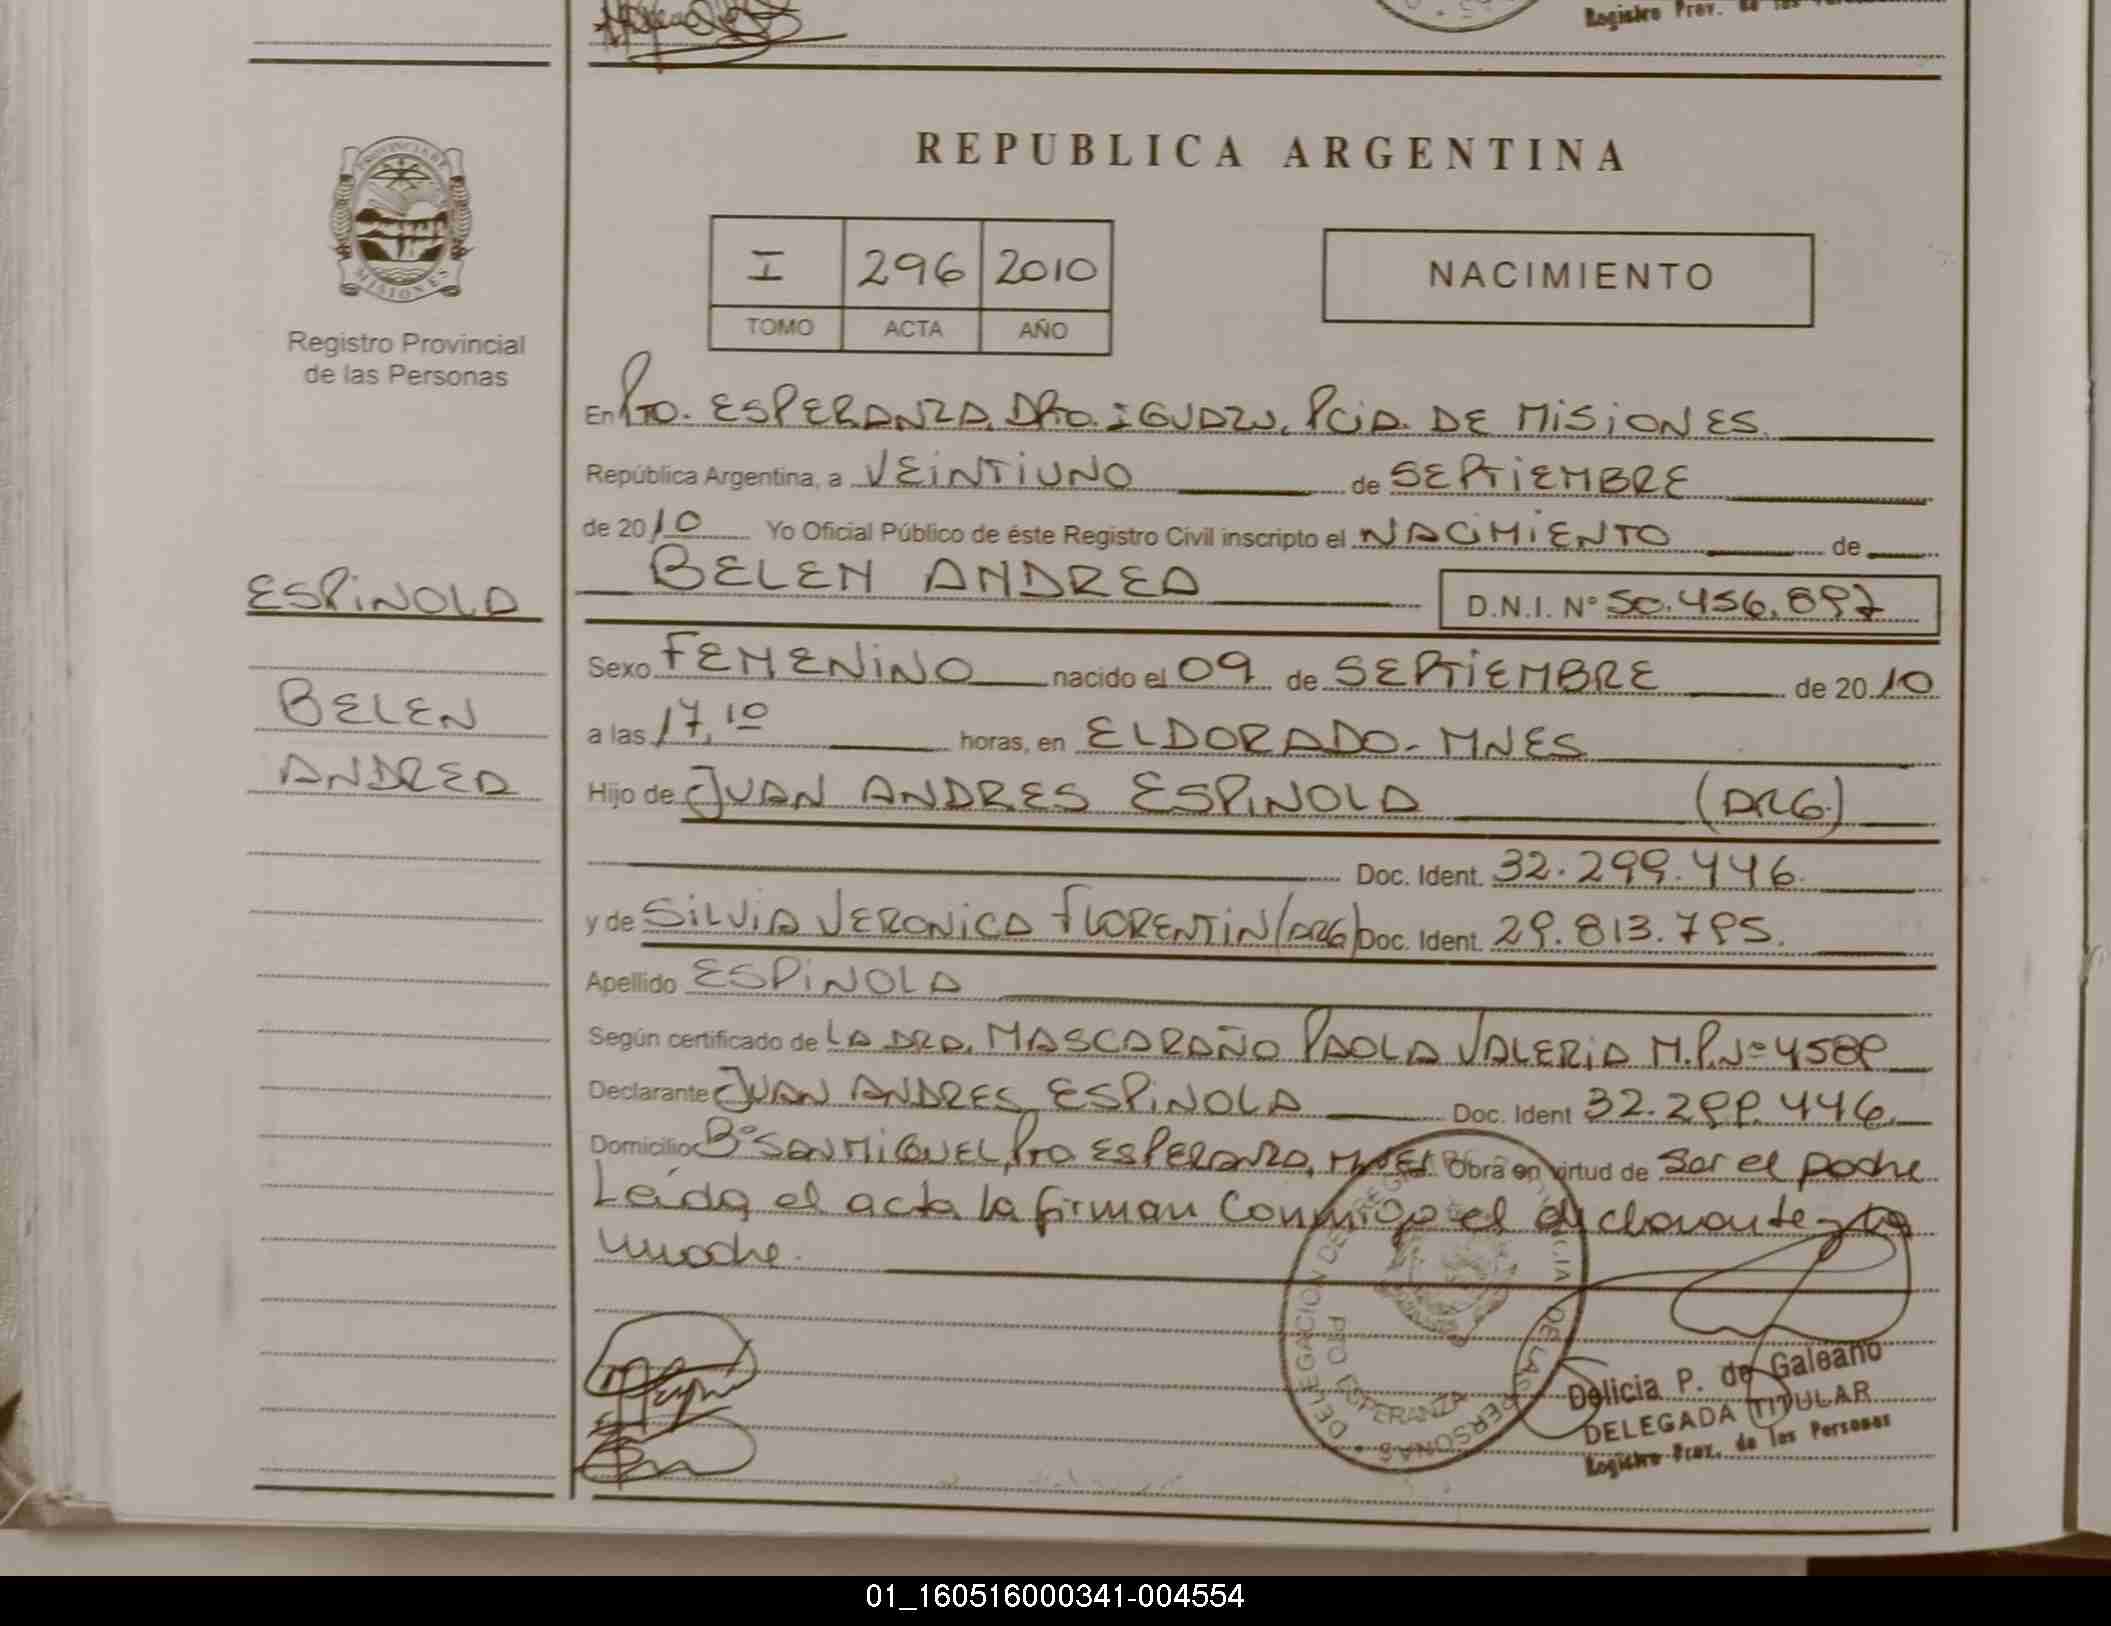 Registro Prov. de las
REPUBLICA ARGENTINA
PROVINCIA DE
MISIONES
Registro Provincial
de las Personas
I 296 2010
TOMO ACTA AÑO
NACIMIENTO
En Pto. ESPERANZA, DPTO. IGUAZU, PCIA. DE MISIONES.
República Argentina, a VEINTIUNO de SEPTIEMBRE
de 2010 Yo Oficial Público de éste Registro Civil inscripto el NACIMIENTO de
BELEN ANDREA D.N.I. Nº 50.456.897
ESPINOLA
BELEN
ANDREA
Sexo FEMENINO nacido el 09 de SEPTIEMBRE de 2010
a las 17,10 horas, en ELDORADO - MNES
Hijo de JUAN ANDRES ESPINOLA (ARG.)
Doc. Ident. 32.299.446.
y de SILVIA VERONICA FLORENTIN (ARG) Doc. Ident. 29.813.795.
Apellido ESPINOLA
Según certificado de LA DRA. MASCARAÑO PAOLA VALERIA M.P. Nº 4589
Declarante JUAN ANDRES ESPINOLA Doc. Ident 32.299.446.
Domicilio Bº SAN MIGUEL, Pto ESPERANZA, MNES. Obra en virtud de Ser el padre
Leída el acta la firman conmigo el declarante y la
madre.
DELEGACION DE REGISTRO PROVINCIAL DE LAS PERSONAS
PTO ESPERANZA
Delicia P. de Galeano
DELEGADA TITULAR
Registro Prov. de las Personas
01_160516000341-004554